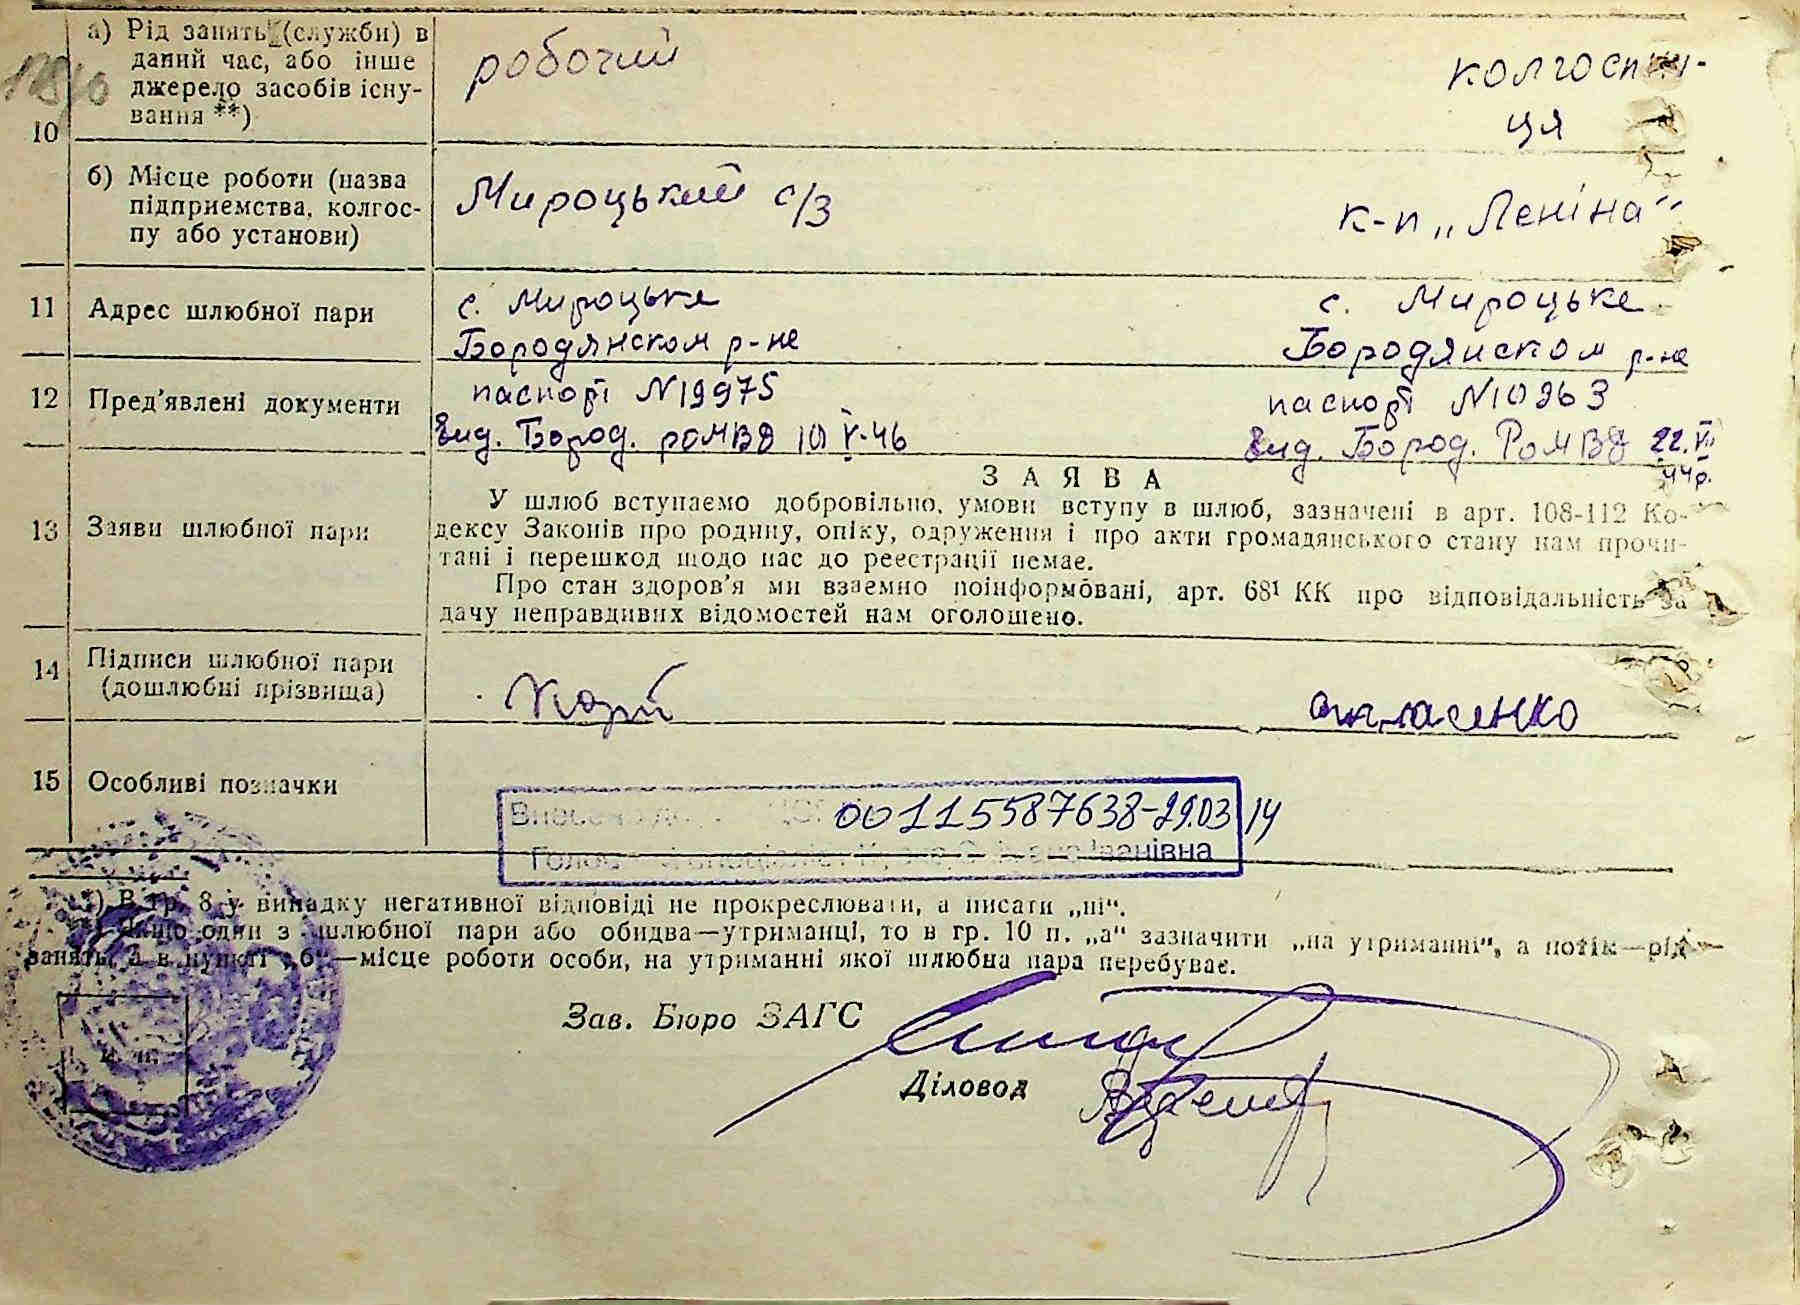 10
а) Рід занять (служби) в
даний час, або інше
джерело засобів існу-
вання **)
робочий
колгоспни-
ця
б) Місце роботи (назва
підприємства, колгос-
пу або установи)
Мироцький с/з
к-п „Леніна“
11 Адрес шлюбної пари
с. Мироцьке
Бородянском р-не
с. Мироцьке
Бородянском р-не
12 Пред'явлені документи
паспорт N19975
вид. Бород. роМВД 10 V-46
паспорт N10963
вид. Бород. РоМВД 22.VII
44р.
ЗАЯВА
13 Заяви шлюбної пари
У шлюб вступаємо добровільно, умови вступу в шлюб, зазначені в арт. 108-112 Ко-
дексу Законів про родину, опіку, одруження і про акти громадянського стану нам прочи-
тані і перешкод щодо нас до реєстрації немає.
Про стан здоров'я ми взаємно поінформовані, арт. 68¹ КК про відповідальність за
дачу неправдивих відомостей нам оголошено.
14 Підписи шлюбної пари
(дошлюбні прізвища)
15 Особливі позначки
00115587638-29.03.14
Іванівна
*) В гр. 8 у випадку негативної відповіді не прокреслювати, а писати „ні“.
Якщо один з шлюбної пари або обидва—утриманці, то в гр. 10 п. „а“ зазначити „на утриманні“, а потім—рід
занять, а в пункті „б“—місце роботи особи, на утриманні якої шлюбна пара перебуває.
Зав. Бюро ЗАГС
Діловод